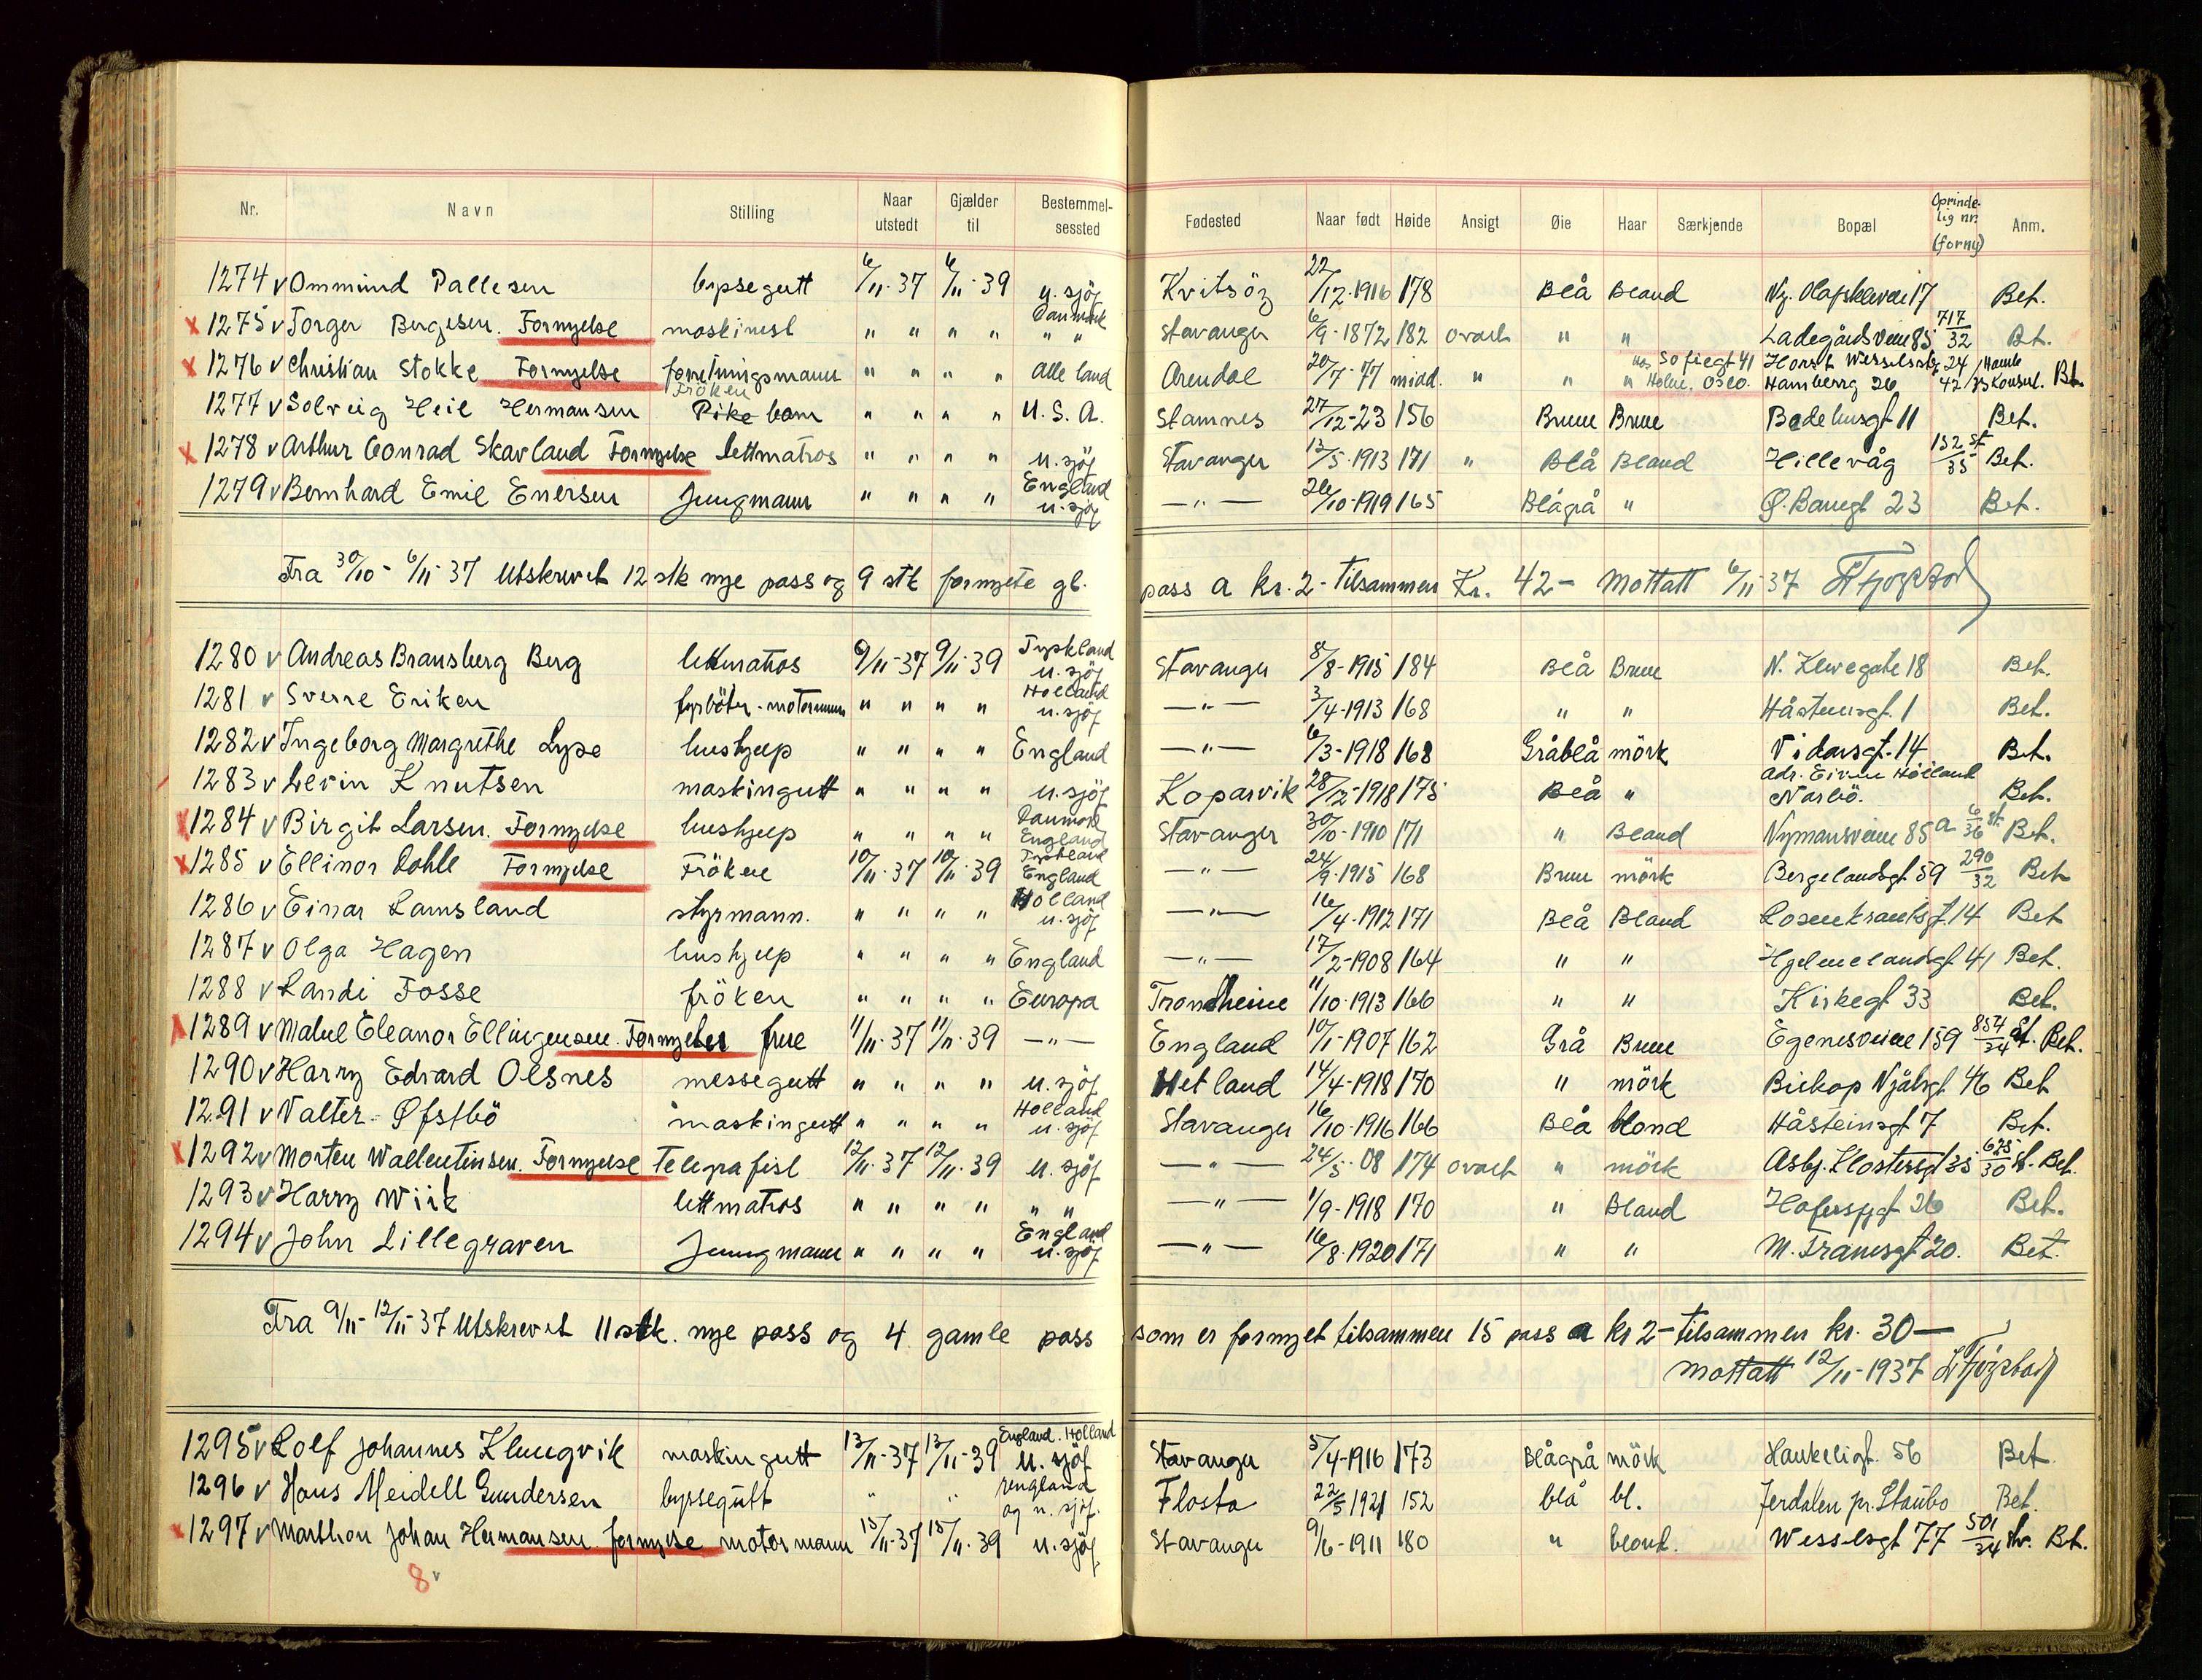 Nr. Navn Stilling Naar utstedt Gjælder til Bestemmelsessted Fødested Naar født Høide Ansigt Øie Haar Særkjende Bopæl Oprindelig nr. (forny) Anm.
1274 v Ommund Pallesen byssegutt 6/11-37 6/11-39 u. sjöf Kvitsöy 22/12-1916 178 Blå Blond Ny. Olafskleven 17 Bet.
x 1275 v Torger Bergesen. Fornyelse maskinist " " " " Danmark " " Stavanger 6/9-1872 182 ovalt " " Ladegårdsveien 85 717/32 Bet.
x 1276 v Christian Stokke Fornyelse forretningsmann " " " " Alle land Arendal 20/7-77 midd. " " " Sofiegt 41 Oslo. 24/42 Bet.
1277 v Solveig Heil Hermansen Fröken Pike barn " " " " U.S.A. Stamnes 27/12-23 156 Brun Brun Badehusgt 11 Bet.
x 1278 v Arthur Conrad Skavland Fornyelse lettmatros " " " " u. sjöf Stavanger 13/5-1913 171 " Blå Blond Hillevåg 152/35 st Bet.
1279 v Bernhard Emil Enersen Jungmann " " " " England u. sjöf — " — 26/10-1919 165 Blågrå " Ø. Banegt 23 Bet.
Fra 30/10 - 6/11-37 Utskrevet 12 stk nye pass og 9 stk fornyete gl. pass a kr. 2- Tilsammen Kr. 42- Mottatt 6/11 37
1280 v Andreas Bransberg Berg lettmatros 9/11-37 9/11-39 Tyskland u. sjöf Stavanger 8/8-1915 184 Blå Brun N. Klevegate 18 Bet.
1281 v Sverre Eriksen fyrböter-motormann " " " " Holland u. sjöf — " — 3/4-1913 168 " " Håsteinsgt. 1 Bet.
1282 v Ingeborg Margrethe Lyse hushjelp " " " " England — " — 6/3-1918 168 Gråblå mörk Vidarsgt. 14 Bet.
1283 v Levin Knutsen maskingutt " " " " u. sjöf Kopervik 28/12-1918 175 Blå " Adr. Eivin Höiland Narbö. Bet.
x 1284 v Birgit Larsen. Fornyelse hushjelp " " " " Danmark England Stavanger 30/10-1910 171 " Blond Nymansveien 85 a 6/36 st. Bet.
x 1285 v Ellinor Dahle Fornyelse Fröken 10/11-37 10/11-39 Tyskland England — " — 24/9-1915 168 Brun mörk Bergelandsgt 59 290/32 Bet
1286 v Einar Ramsland styrmann. " " " " Holland u. sjöf — " — 16/4-1912 171 Blå Blond Rosenkrantsgt. 14 Bet
1287 v Olga Hagen hushjelp " " " " England — " — 17/2-1908 164 " " Hjelmelandsgt 41 Bet.
1288 v Randi Fosse fröken " " " " Europa Trondheim 11/10-1913 166 " " Kirkegt 33 Bet.
x 1289 v Mabel Eleanor Ellingsen. Fornyelse frue 11/11-37 11/11-39 — " — England 10/1-1907 162 Grå Brun Egenesveien 159 854/34 st. Bet.
1290 v Harry Edvard Olsnes messegutt " " " " u. sjöf Hetland 14/4-1918 170 " mörk Biskop Njålsgt 46 Bet
1291 v Valter Øfstbö maskingutt " " " " Holland u. sjöf Stavanger 16/10-1916 166 Blå blond Håsteinsgt 7 Bet.
x 1292 v Morten Wallentinsen. Fornyelse Telegrafist 12/11-37 12/11-39 u. sjöf — " — 24/5-08 174 ovalt " mörk Asbj. Klostersgt 35 625/30 st. Bet.
1293 v Harry Wiik lettmatros " " " " " " — " — 1/9-1918 170 " Blond 26 Bet.
1294 v John Lillegraven Jungmann " " " " England u. sjöf — " — 16/8-1920 171 " " M. Transgt 20. Bet.
Fra 9/11 - 12/11-37 Utskrevet 11 stk. nye pass og 4 gamle pass som er fornyet tilsammen 15 pass a kr 2- tilsammen kr. 30—
Mottatt 12/11-1937
1295 v Rolf Johannes Klungvik maskingutt 13/11-37 13/11-39 England. Holland u. sjöf Stavanger 5/4-1916 173 Blågrå mörk Haukeligt. 56 Bet.
1296 v Hans Meidell Gundersen byssegutt " " England og u. sjöf. Flosta 22/5 1921 152 blå bl. Jerdalen pr. Staubo Bet.
x 1297 v Marthon Johan Hermansen. fornyelse motormann 15/11-37 15/11-39 u. sjöf Stavanger 9/6-1911 180 " blond. Wesselsgt 77 501/34 Bet.
8 v